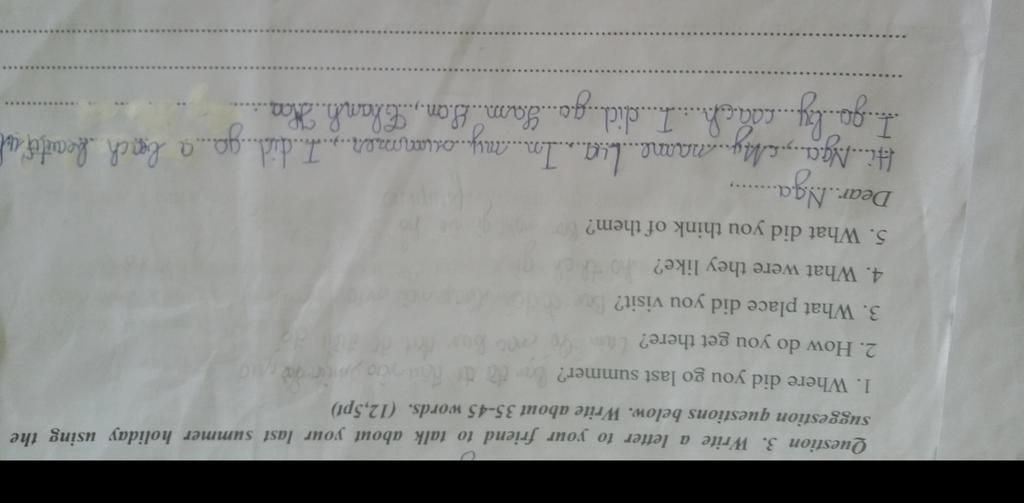 Question 3. Write a letter to your friend to talk about your last summer holiday using the
suggestion questions below. Write about 35-45 words. (12,5pt)
1. Where did you go last summer?
2. How do you get there?
3. What place did you visit?
4. What were they like?
5. What did you think of them?
Dear Nga,
Hi Nga, My name Lua. In my summer, I did go a beach beautiful
I go by coach. I did go Sam Son, Thanh Hoa.